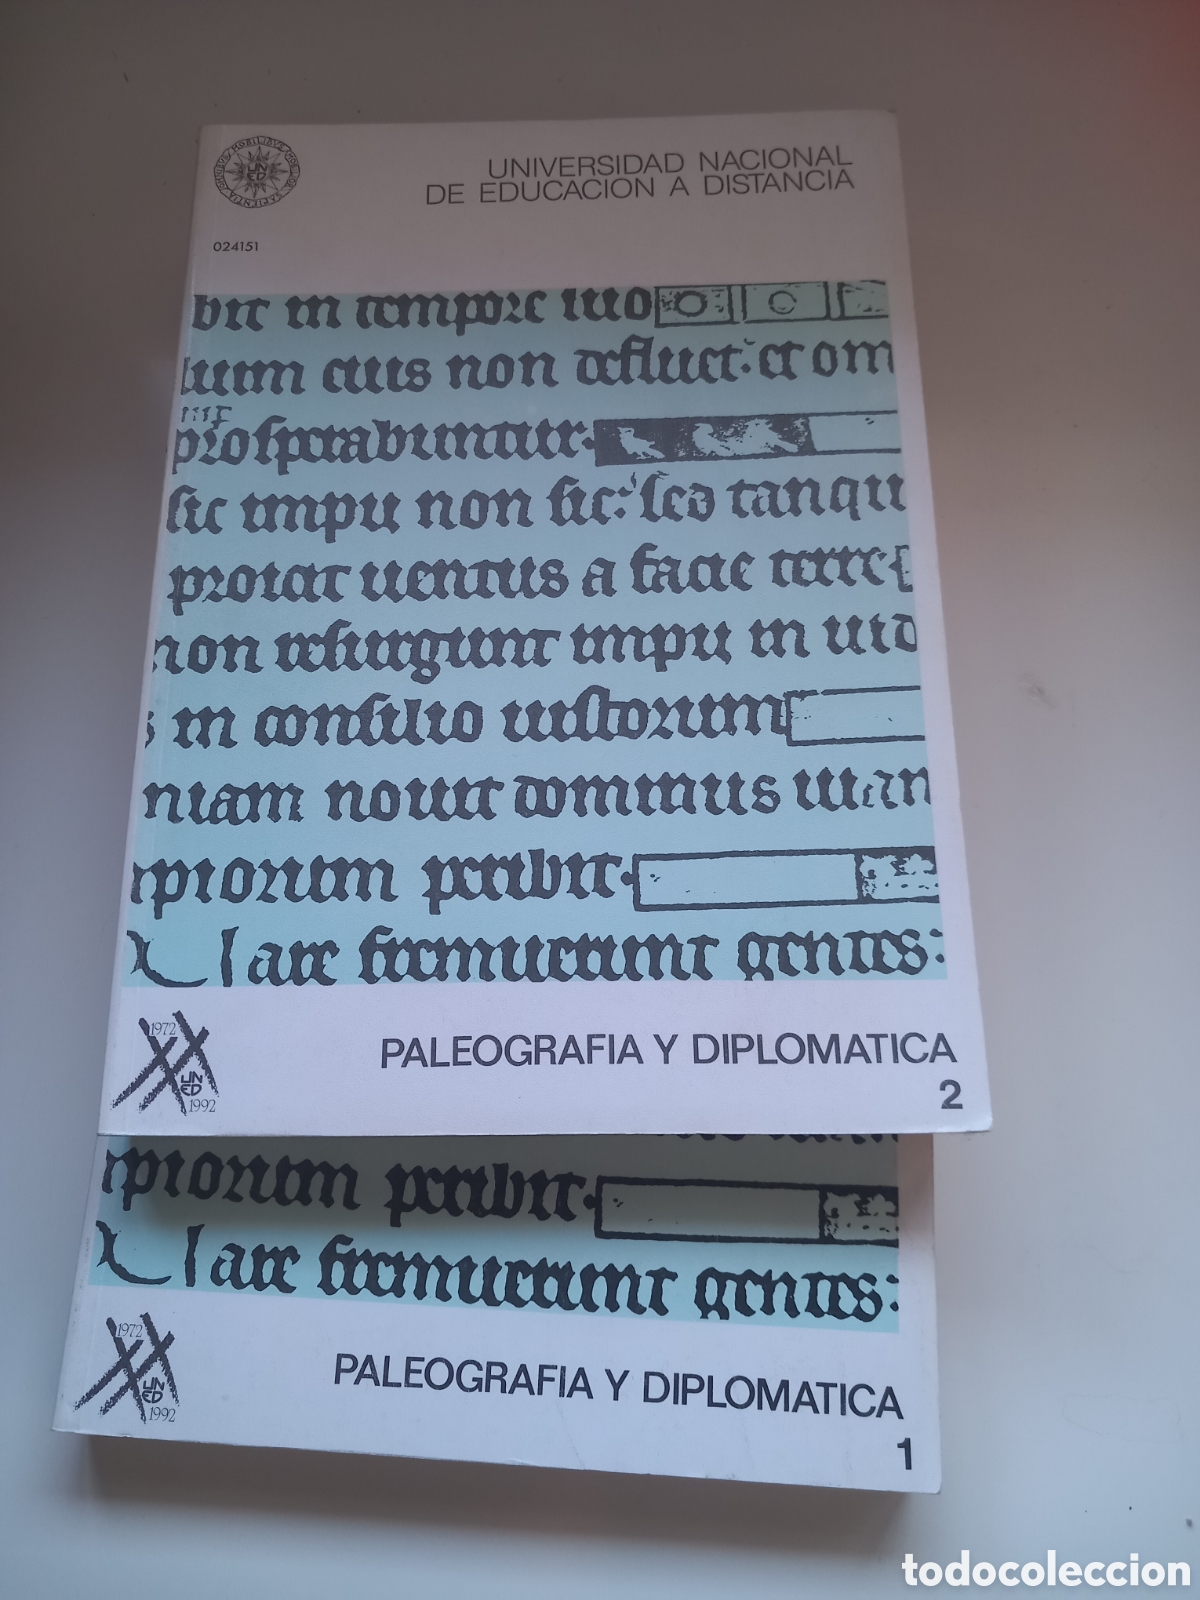 OMNIBUS MOBILIBUS MOBILIOR SAPIENTIA
UN
ED
UNIVERSIDAD NACIONAL
DE EDUCACION A DISTANCIA
024151
bit in tempore suo
lium eius non defluet: et om
prosperabuntur.
sic impii non sic: sed tanqu
proicit uentus a facie terre
non resurgunt impii in iud
s in consilio iustorum
niam nouit dominus uiam
impiorum peribit.
are fremuerunt gentes:
1972
UN
ED
1992
PALEOGRAFIA Y DIPLOMATICA
2
impiorum peribit.
are fremuerunt gentes:
1972
UN
ED
1992
PALEOGRAFIA Y DIPLOMATICA
1
todocoleccion